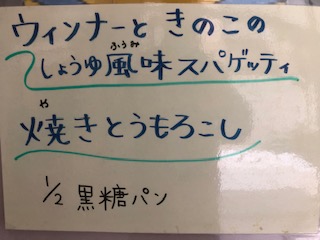 ウィンナーと きのこの
しょうゆ風味スパゲッティ
ふうみ
焼きとうもろこし
や
1/2 黒糖パン